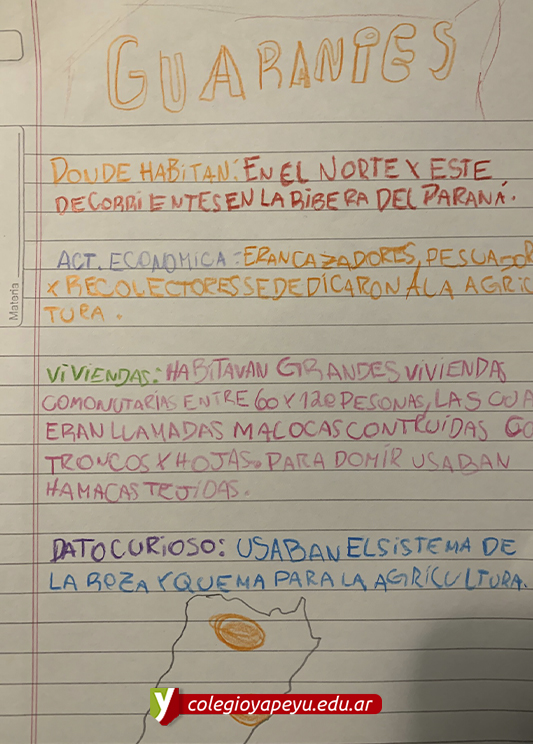 GUARANIES
Materia
DONDE HABITAN: EN EL NORTE Y ESTE
DE CORRIENTES EN LA RIBERA DEL PARANÁ.
ACT. ECONOMICA: ERAN CAZADORES, PESCADOR
Y RECOLECTORES SE DEDICARON A LA AGRIC
TURA.
VIVIENDAS: HABITAVAN GRANDES VIVIENDAS
COMONUTARIAS ENTRE 60 Y 120 PESONAS, LAS CUA
ERAN LLAMADAS MALOCAS CONTRUÍDAS CO
TRONCOS Y HOJAS. PARA DOMIR USABAN
HAMACAS TEJIDAS.
DATO CURIOSO: USABAN EL SISTEMA DE
LA ROZA Y QUEMA PARA LA AGRICULTURA.
y colegioyapeyu.edu.ar